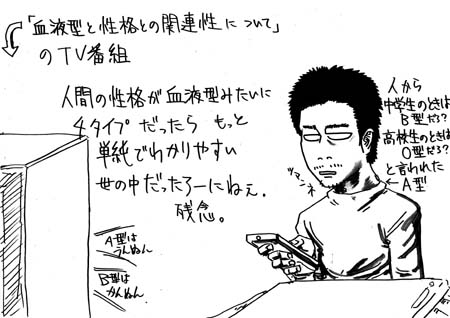 「血液型と性格との関連性について」
のTV番組
人間の性格が血液型みたいに
4タイプだったら もっと
単純でわかりやすい
世の中だったろーにねぇ.
残念。
人から
中学生のときは
B型だろ?
高校生のときは
O型だろ?
と言われた
A型
ツマンネ
A型は
うんぬん
B型は
かんぬん